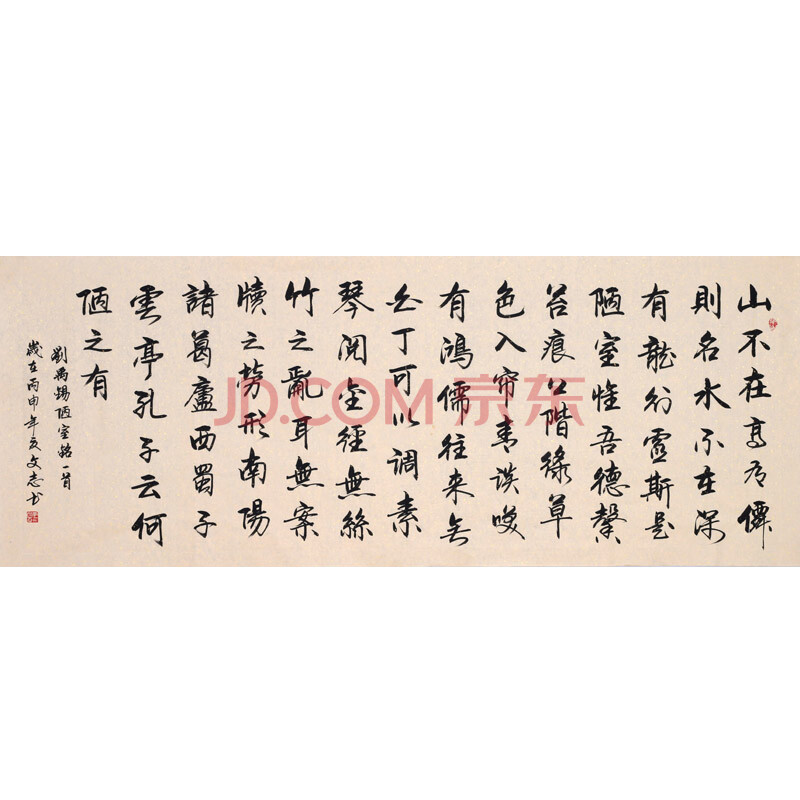 山不在高有僊
則名水不在深
有龍則靈斯是
陋室惟吾德馨
苔痕上階綠草
色入帘青談笑
有鴻儒往來無
白丁可以調素
琴閱金經無絲
竹之亂耳無案
牘之勞形南陽
諸葛廬西蜀子
雲亭孔子云何
陋之有
劉禹錫陋室銘一首
歲在丙申年夏文志书
JD.COM 京东